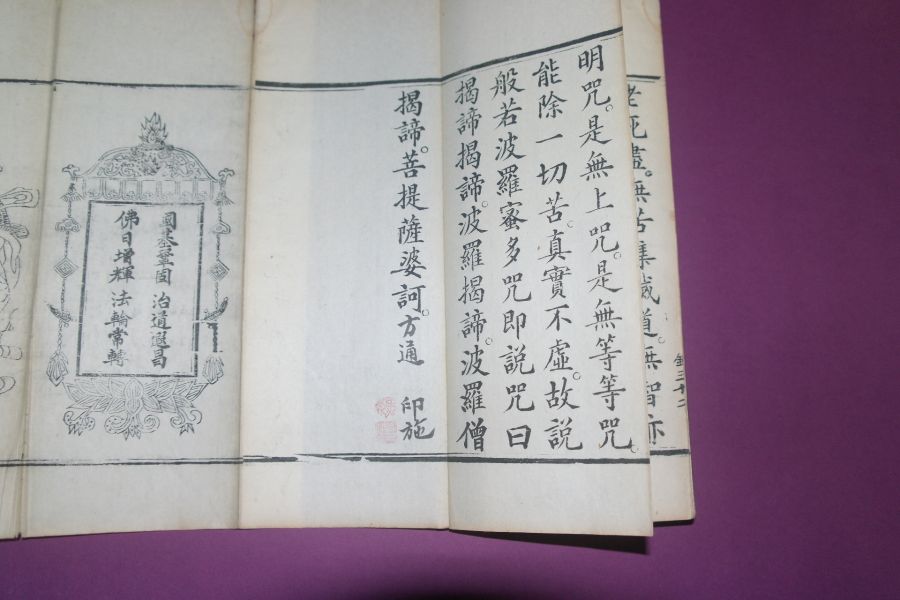 老死盡。無苦集滅道。無智亦
明咒。是無上咒。是無等等咒。
能除一切苦。真實不虛。故説
般若波羅蜜多咒即説咒曰
揭諦揭諦。波羅揭諦。波羅僧
揭諦。菩提薩婆訶。方通 印施
國基鞏固 治道遐昌
佛日增輝 法輪常轉